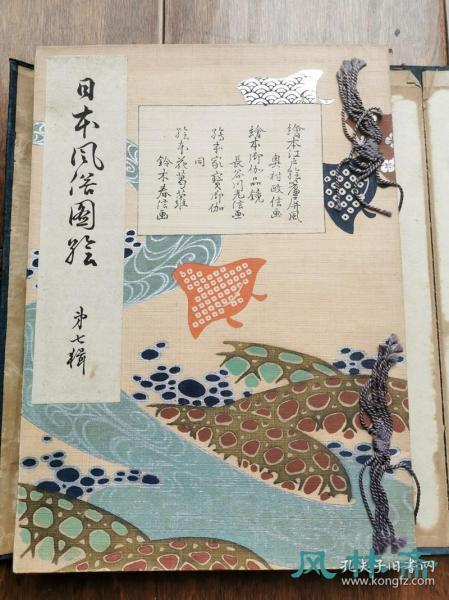 日本風俗圖繪
第七輯
繪本江戸繪簾屏風
奥村政信画
繪本御伽品鏡
長谷川光信画
繪本家寶御伽
同
繪本花葛蘿
鈴木春信画
孔夫子旧书网
www.kongfz.com